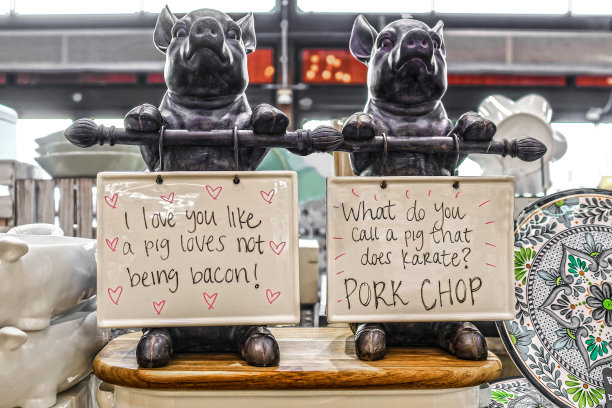 I love you like
a pig loves not
being bacon!
What do you
call a pig that
does karate?
PORK CHOP